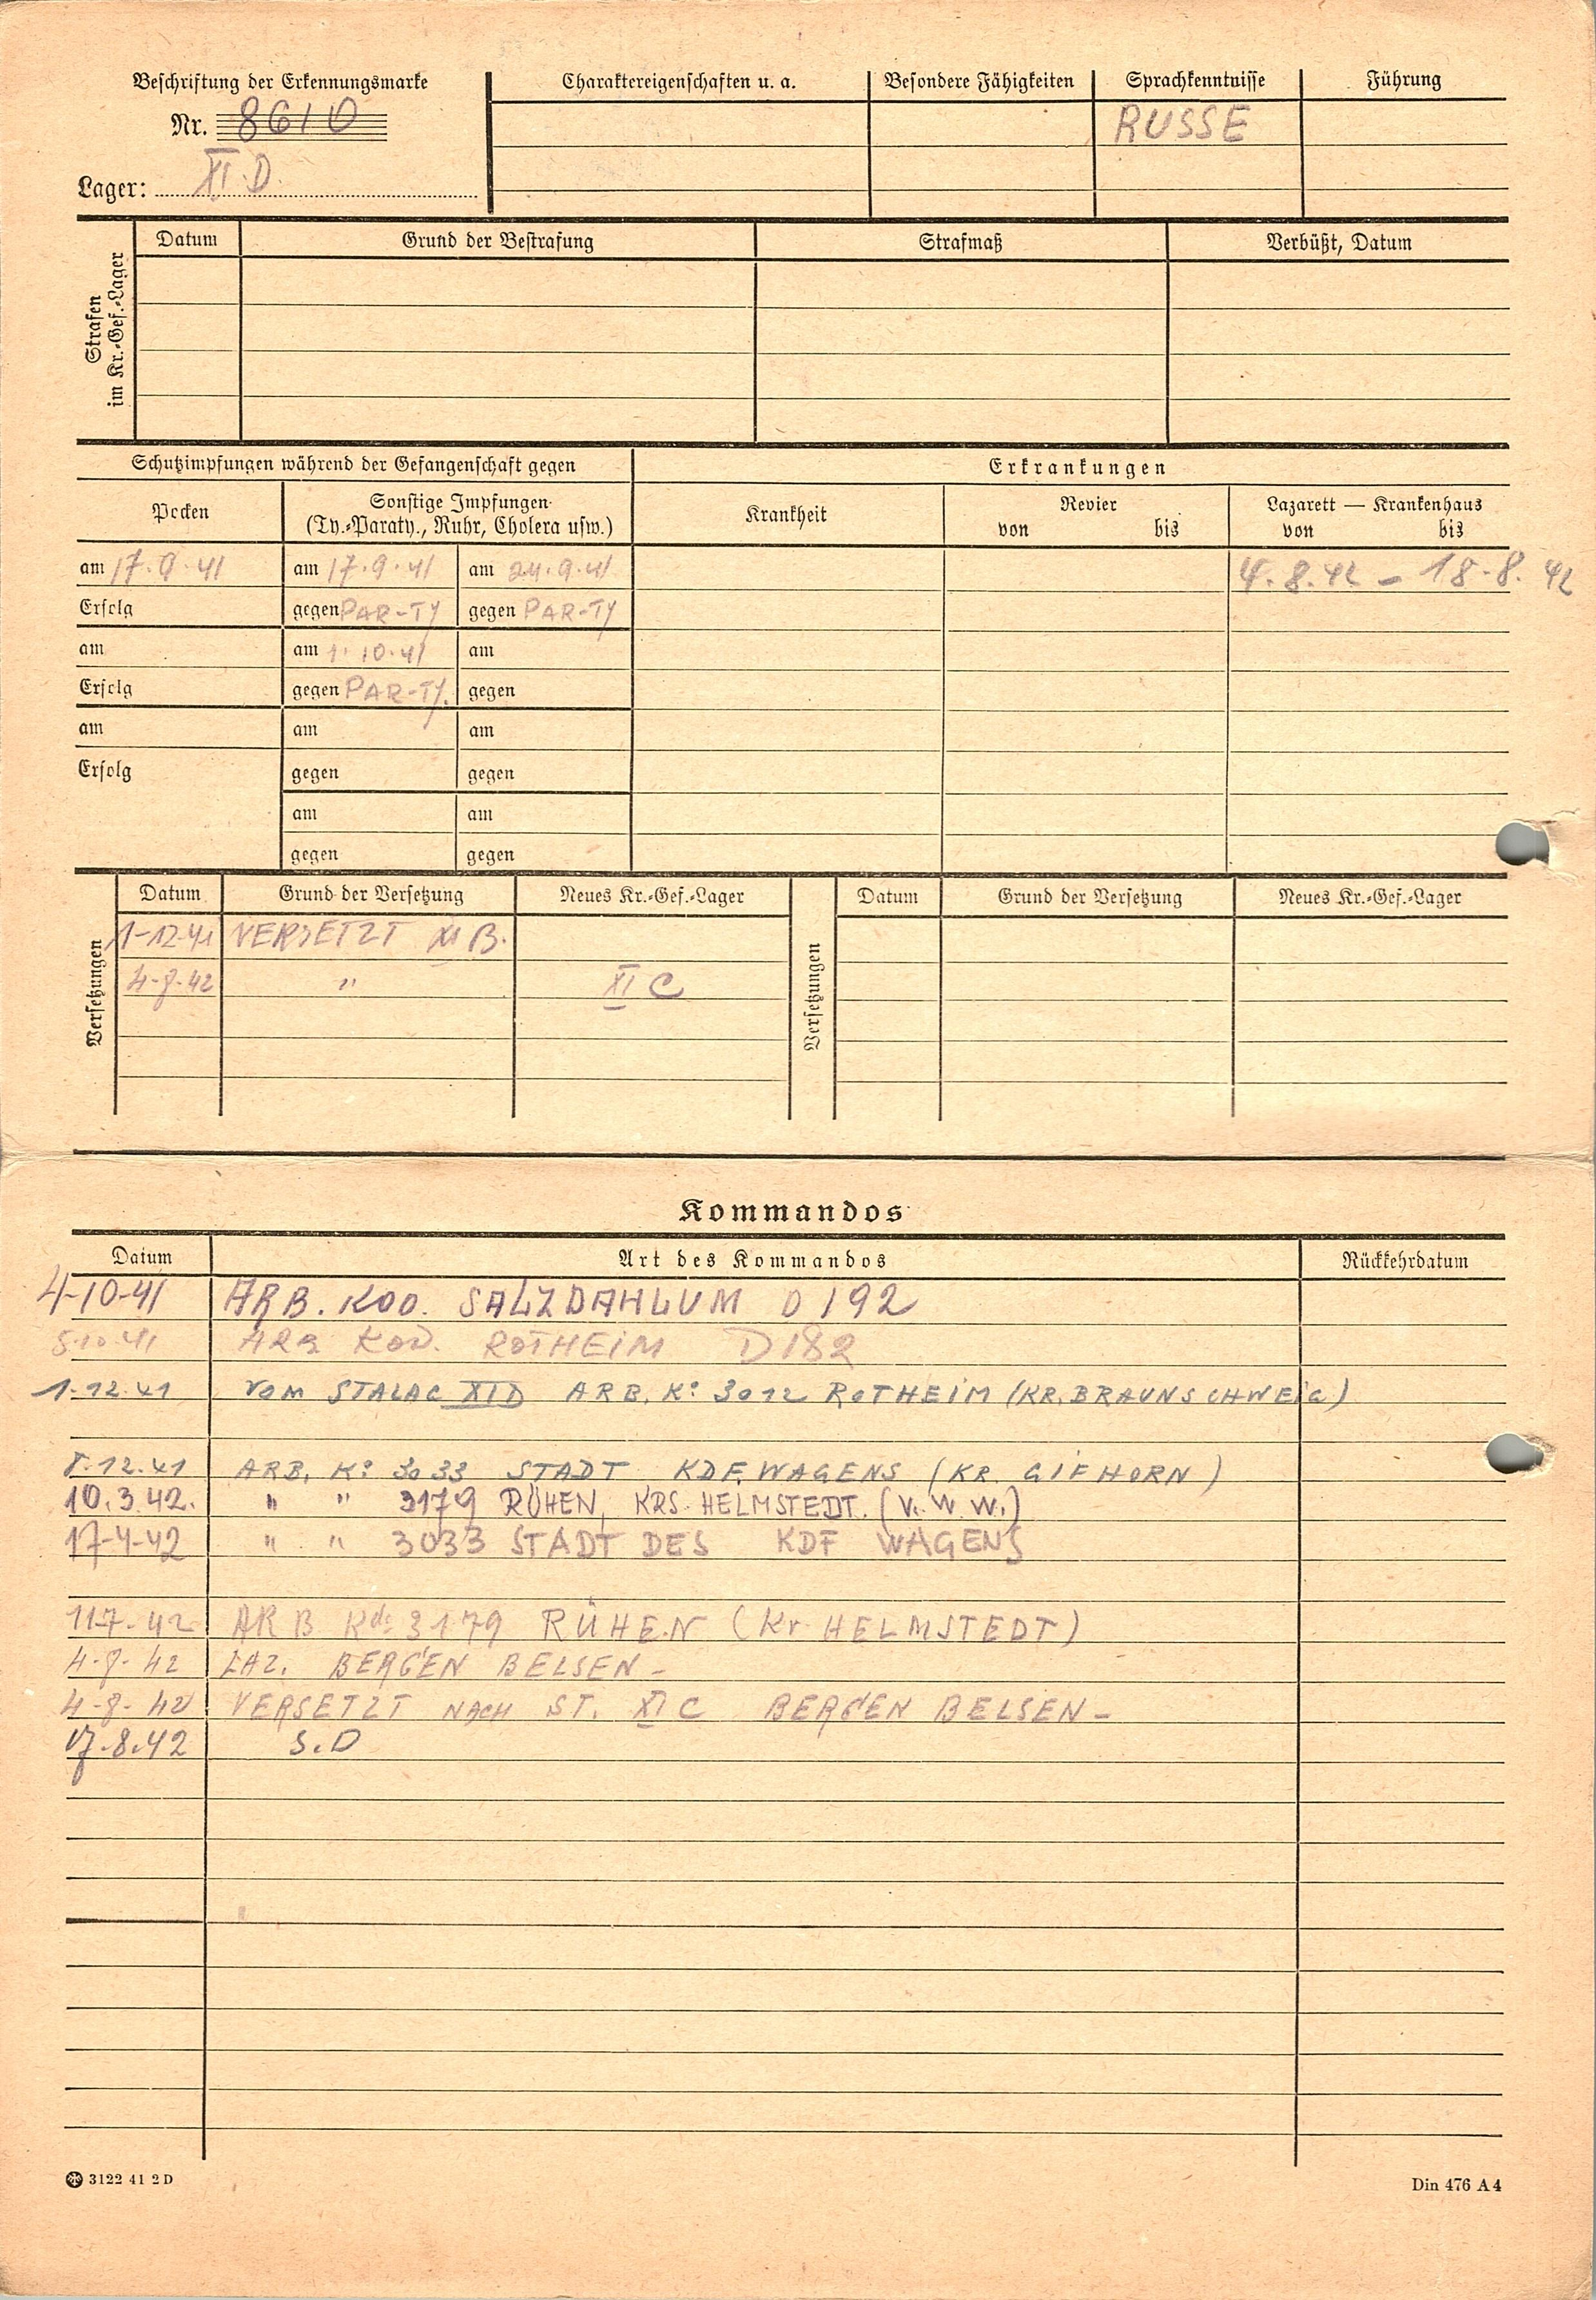 Beschriftung der Erkennungsmarke
Nr. 8610
Lager: XI.D.
Charaktereigenschaften u. a. Besondere Fähigkeiten Sprachkenntnisse Führung
RUSSE
Strafen im Kr.-Gef.-Lager
Datum Grund der Bestrafung Strafmaß Verbüßt, Datum
Schutzimpfungen während der Gefangenschaft gegen Erkrankungen
Pocken Sonstige Impfungen (Ty.-Paraty., Ruhr, Cholera usw.) Krankheit Revier von bis Lazarett — Krankenhaus von bis
am 17.9.41 am 17.9.41 am 24.9.41 4.8.42 – 18.8.42
Erfolg gegen PAR-TY gegen PAR-TY
am am 1.10.41 am
Erfolg gegen PAR-TY. gegen
am am am
Erfolg gegen gegen
am am
gegen gegen
Versetzungen Datum Grund der Versetzung Neues Kr.-Gef.-Lager Versetzungen Datum Grund der Versetzung Neues Kr.-Gef.-Lager
1-12-41 VERSETZT XI B.
4-8-42 " XI C
Kommandos
Datum Art des Kommandos Rückkehrdatum
4-10-41 ARB. KDO. SALZDAHLUM D 192
5.10.41 ARB KOD. ROTHEIM D 182
1.12.41 VOM STALAG XI D ARB. Ko 3012 ROTHEIM (KR. BRAUNSCHWEIG)
8.12.41 ARB. Ko 3033 STADT KDF. WAGENS (KR. GIFHORN)
10.3.42. " " 3179 RÜHEN, KRS. HELMSTEDT. (V. W. W.)
17-4-42 " " 3033 STADT DES KDF WAGENS
11.7.42 ARB Kdo 3179 RÜHEN (Kr. HELMSTEDT)
4-8-42 LAZ. BERGEN BELSEN –
4-8-42 VERSETZT NACH ST. XI C BERGEN BELSEN –
17.8.42 S.D
3122 41 2 D
Din 476 A 4